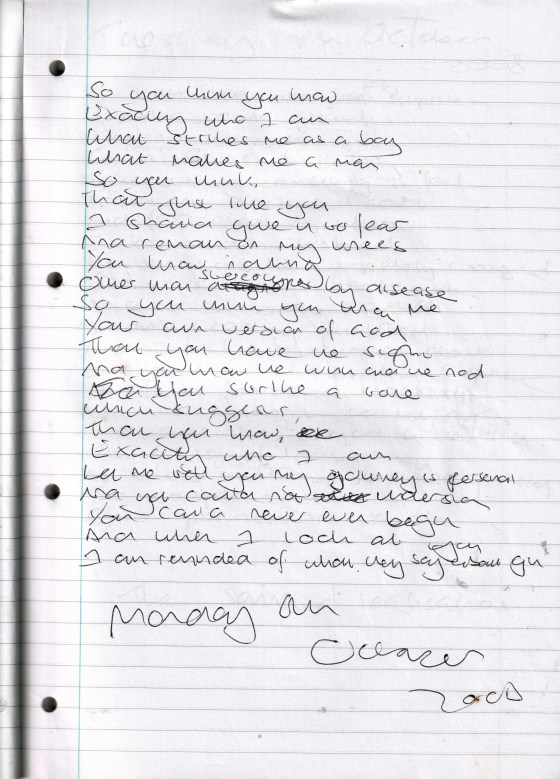 So you think you know
Exactly who I am
What strikes me as a boy
What makes me a man
So you think,
That just like you
I should give in to fear
And remain on my knees
You know nothing
Other than stereotypes by disease
So you think you know me
Your own version of God
That you have the sight
And you know the wink and the nod
You strike a note
which suggest,
That you know,
Exactly who I am
Let me tell you my journey is personal
And you could not understand
You could never ever begin
And when I look at you
I am reminded of what they say about
Monday
October